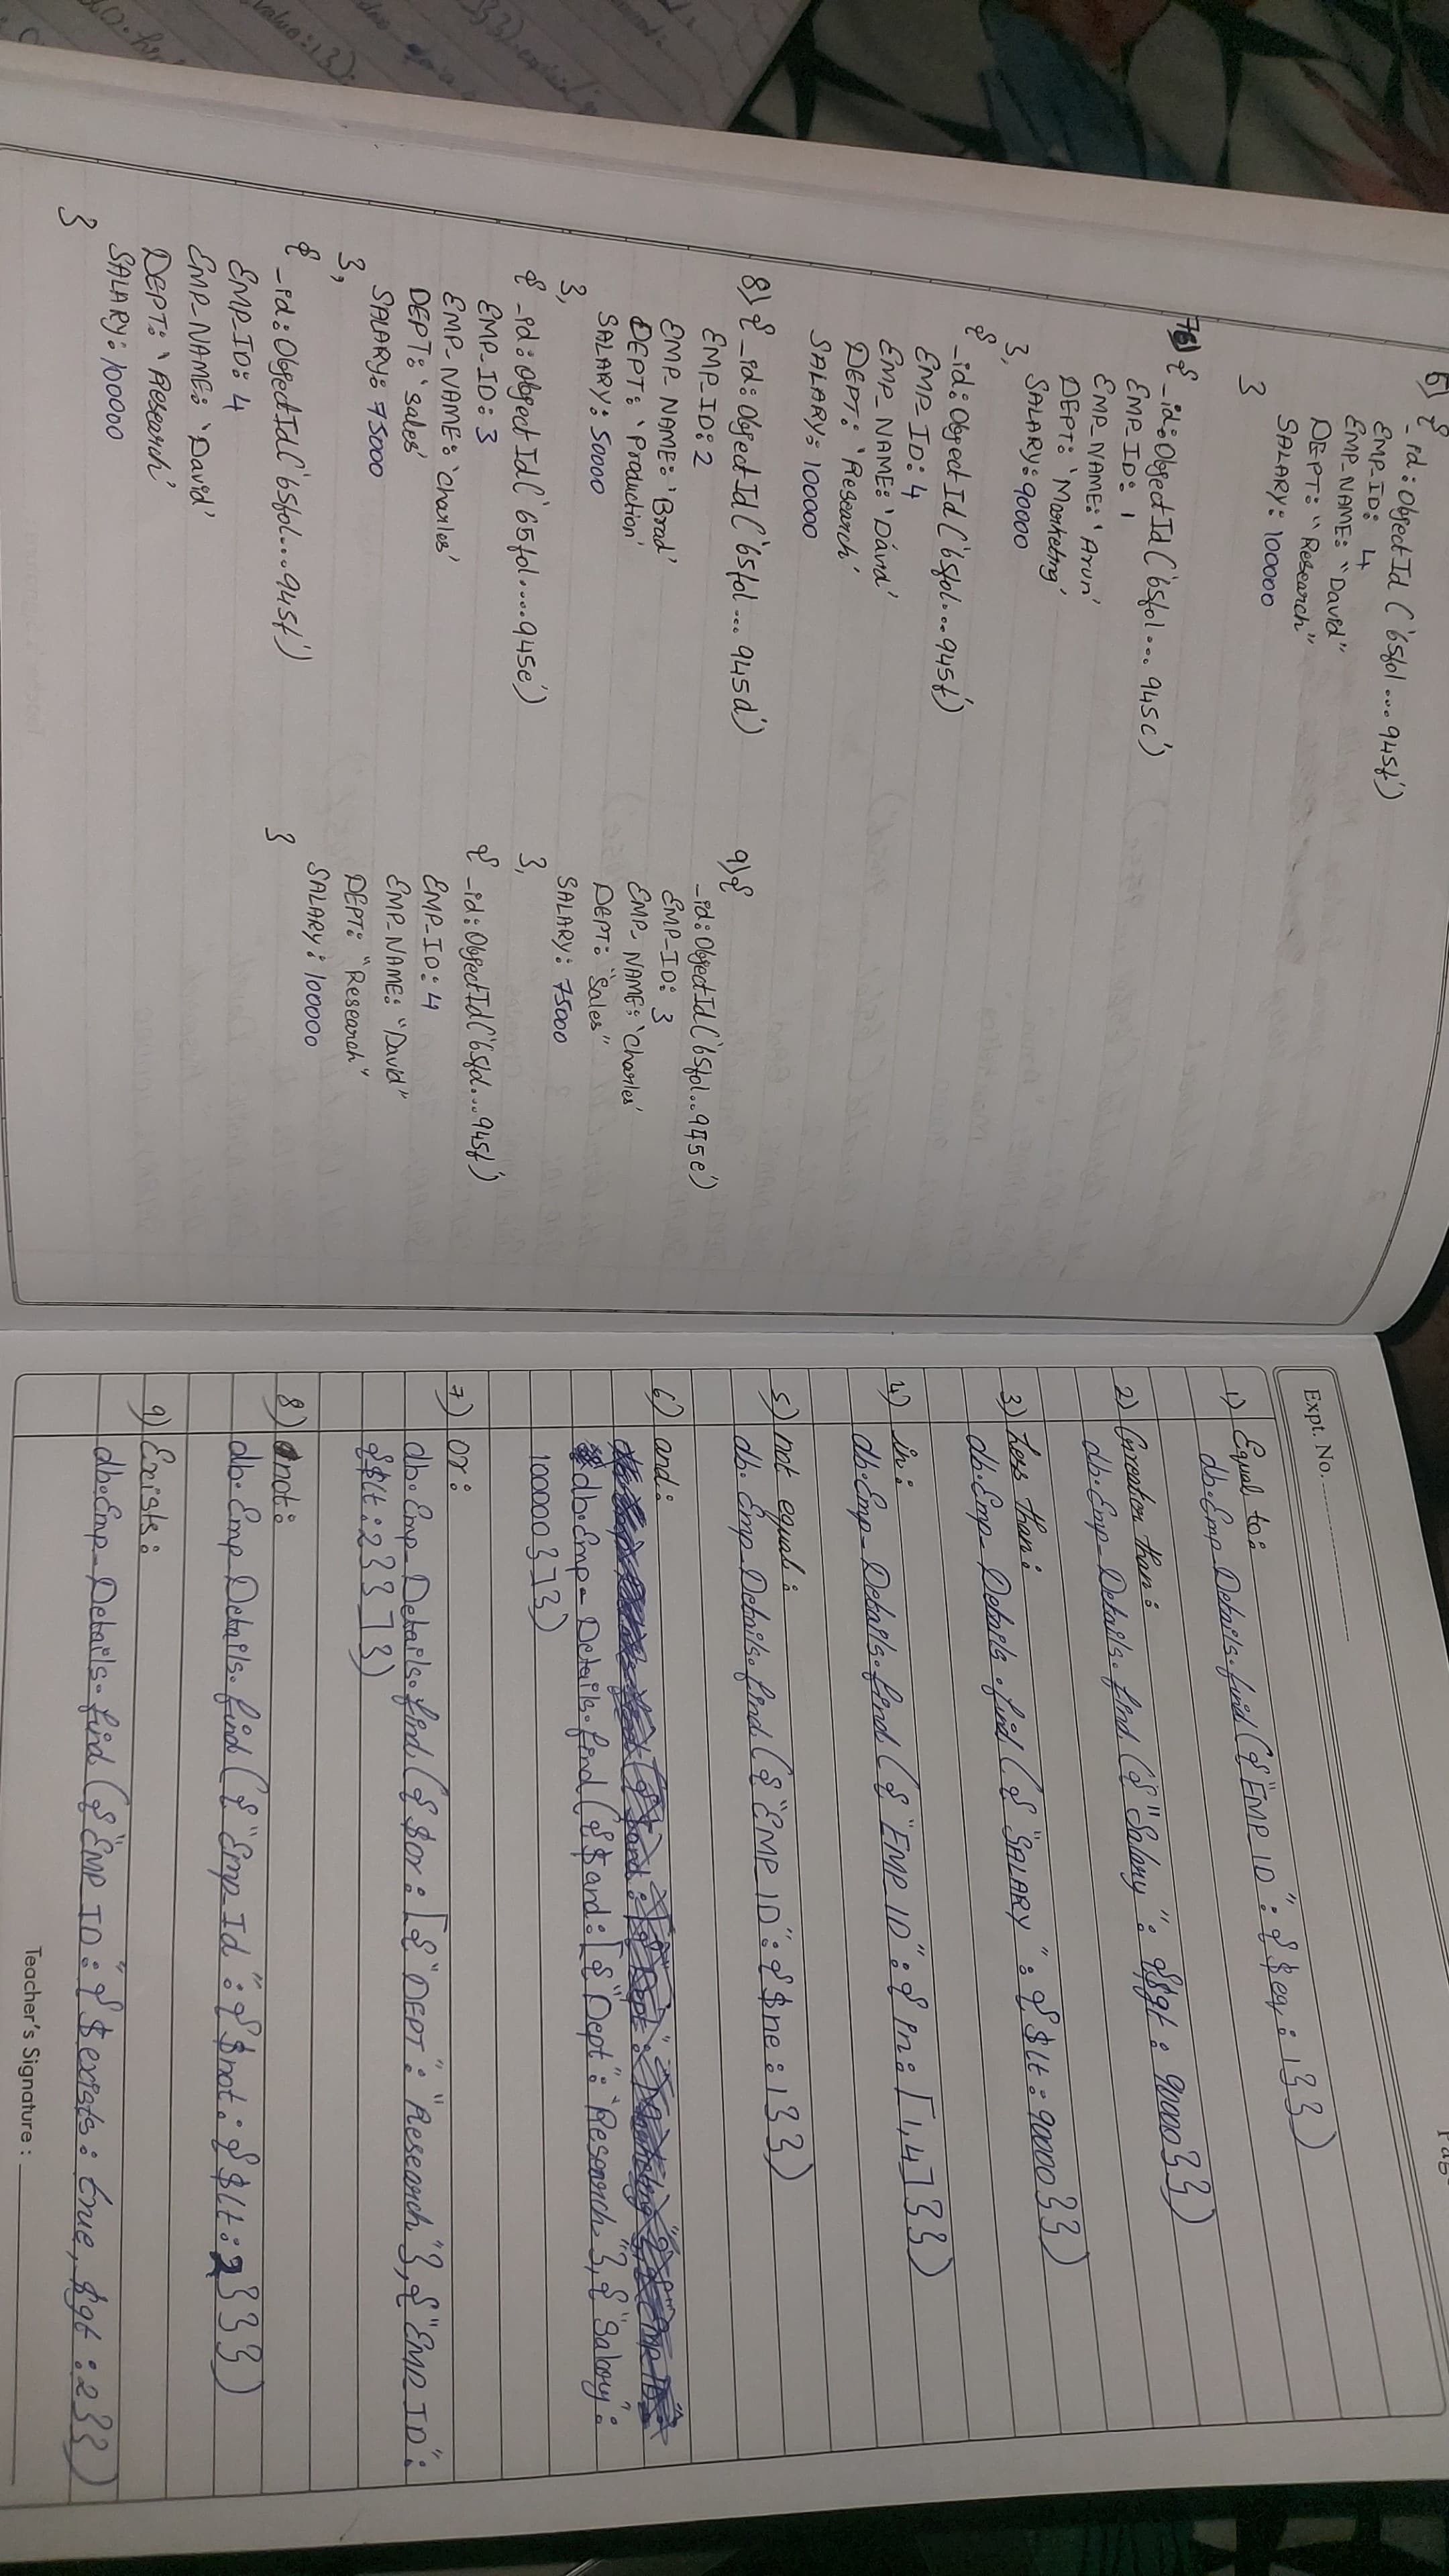 6) {
_id: ObjectId ('65f01...945f')
EMP_ID: 4
EMP_NAME: "David"
DEPT: "Research"
SALARY: 100000
}
7) { _id: ObjectId ('65f01...945c')
EMP_ID: 1
EMP_NAME: 'Arun'
DEPT: 'Marketing'
SALARY: 90000
},
{
_id: ObjectId ('65f01...945f')
EMP_ID: 4
EMP_NAME: 'David'
DEPT: 'Research'
SALARY: 100000
8) { _id: ObjectId ('65f01...945d')
EMP_ID: 2
EMP_NAME: 'Brad'
DEPT: 'Production'
SALARY: 50000
},
{ _id: ObjectId ('65f01....945e')
EMP_ID: 3
EMP_NAME: 'Charles'
DEPT: 'Sales'
SALARY: 75000
},
{
_id: ObjectId ('65f01...945f')
EMP_ID: 4
EMP_NAME: 'David'
DEPT: 'Research'
SALARY: 100000
}
9) {
_id: ObjectId ('65f01..945e')
EMP_ID: 3
EMP_NAME: 'Charles'
DEPT: "Sales"
SALARY: 75000
},
{ _id: ObjectId ('65f01...945f')
EMP_ID: 4
EMP_NAME: "David"
DEPT: "Research"
SALARY: 100000
}
Expt. No.
1) Equal to:
db.Emp_Details.find ({"EMP_ID": {$eq: 1}})
2) Greater than:
db.Emp_Details.find ({"Salary": {$gt: 90000}})
3) Less than:
db.Emp_Details.find ({"SALARY": {$lt: 90000}})
4) in:
db.Emp_Details.find ({"EMP_ID": { in: [1,4]}})
5) not equal:
db.Emp_Details.find ({"EMP_ID": {$ne: 1}})
6) and:
db.Emp_Details.find ({$and: [{"Dept": 'Research"}, {"Salary":
100000}]})
7) or:
db.Emp_Details.find ({$or: [{"DEPT": "Research"}, {"EMP_ID":
{$lt: 2}}]})
8) not:
db.Emp_Details.find ({"Emp_Id": {$not: {$lt: 2}}})
9) Exists:
db.Emp_Details.find ({"EMP_ID": {$exists: true, $gt: 2}})
Teacher's Signature :